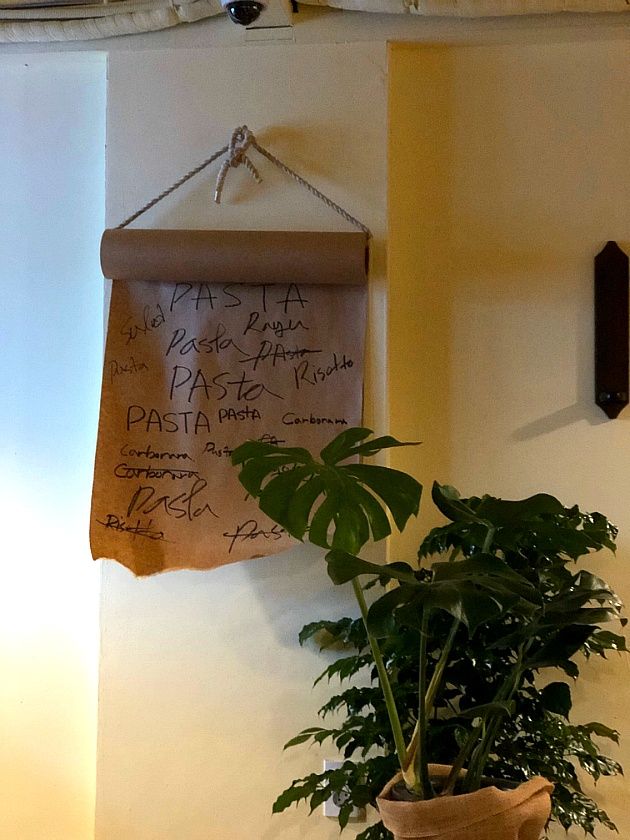 PASTA
Salad
Ragu
Pasta
PAsta
Pasta
Risotto
PAsta
PASTA PASTA Carbonara
Carbonara Pasta
Carbonara
Pasta
Risotto